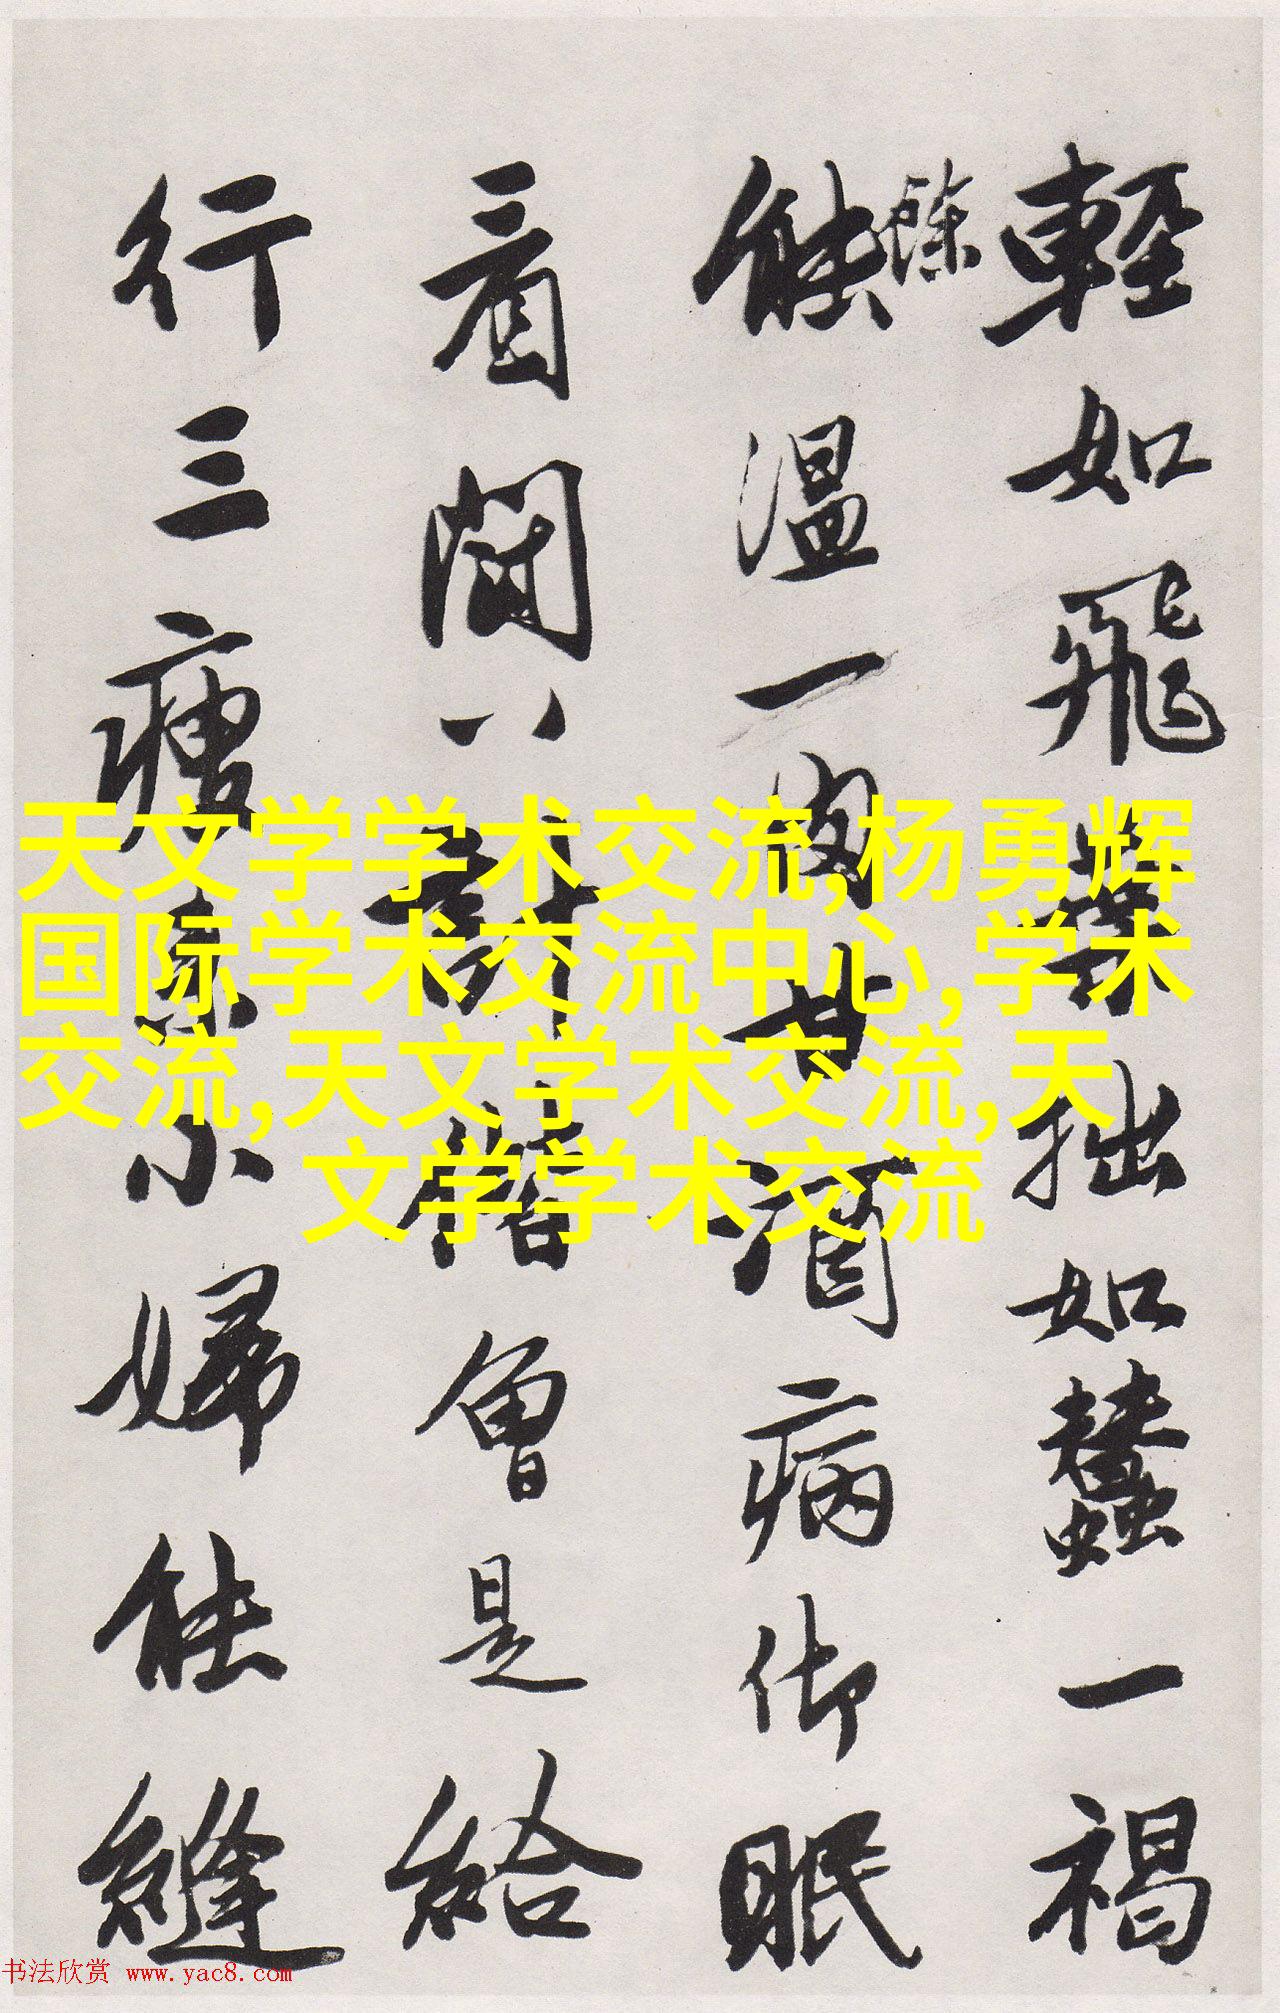 輕如飛拙如蠶一褐
餘
能溫一肉甘酒病仰眠
看鬪八計僧曾是給
行三瘦小婦能縫
天文学学术交流,杨勇辉
国际学术交流中心,学术
交流,天文学术交流,天
文学学术交流
书法欣赏 www.yac8.com